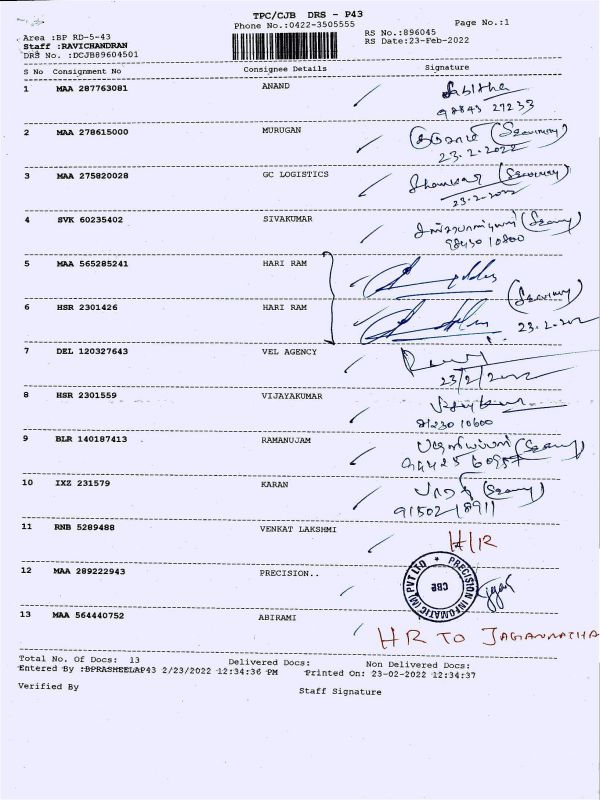 TPC/CJB DRS - P43
Phone No.:0422-3505555
Page No.:1
Area :BP RD-5-43
RS No.:896045
Staff :RAVICHANDRAN
RS Date:23-Feb-2022
DRS No. :DCJB89604501
S No Consignment No Consignee Details Signature
1 MAA 287763081 ANAND
98843 27233
2 MAA 278615000 MURUGAN
23.2.2022
3 MAA 275820028 GC LOGISTICS
23-2-2022
4 SVK 60235402 SIVAKUMAR
98430 10800
5 MAA 565285241 HARI RAM
6 HSR 2301426 HARI RAM
23.2.202
7 DEL 120327643 VEL AGENCY
23/2/2022
8 HSR 2301559 VIJAYAKUMAR
Vijaykumar
81230 10600
9 BLR 140187413 RAMANUJAM
10 IXZ 231579 KARAN
91502-18911
11 RNB 5289488 VENKAT LAKSHMI
H/R
12 MAA 289222943 PRECISION..
PRECISION INFOMATIC (M) PVT LTD * CBE
13 MAA 564440752 ABIRAMI
HR TO JAGANNATHA
Total No. Of Docs: 13 Delivered Docs: Non Delivered Docs:
Entered By :BPRASHEELAP43 2/23/2022 12:34:36 PM Printed On: 23-02-2022 12:34:37
Verified By
Staff Signature